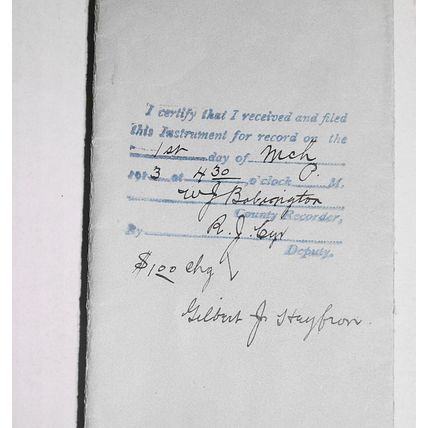 I certify that I received and filed
this Instrument for record on the
1st day of Mch
3 at 4 30 o'clock P. M.
W J
County Recorder,
By R. J. Cyr
Deputy.
$1.00 chg
Gilbert J Heyfron.